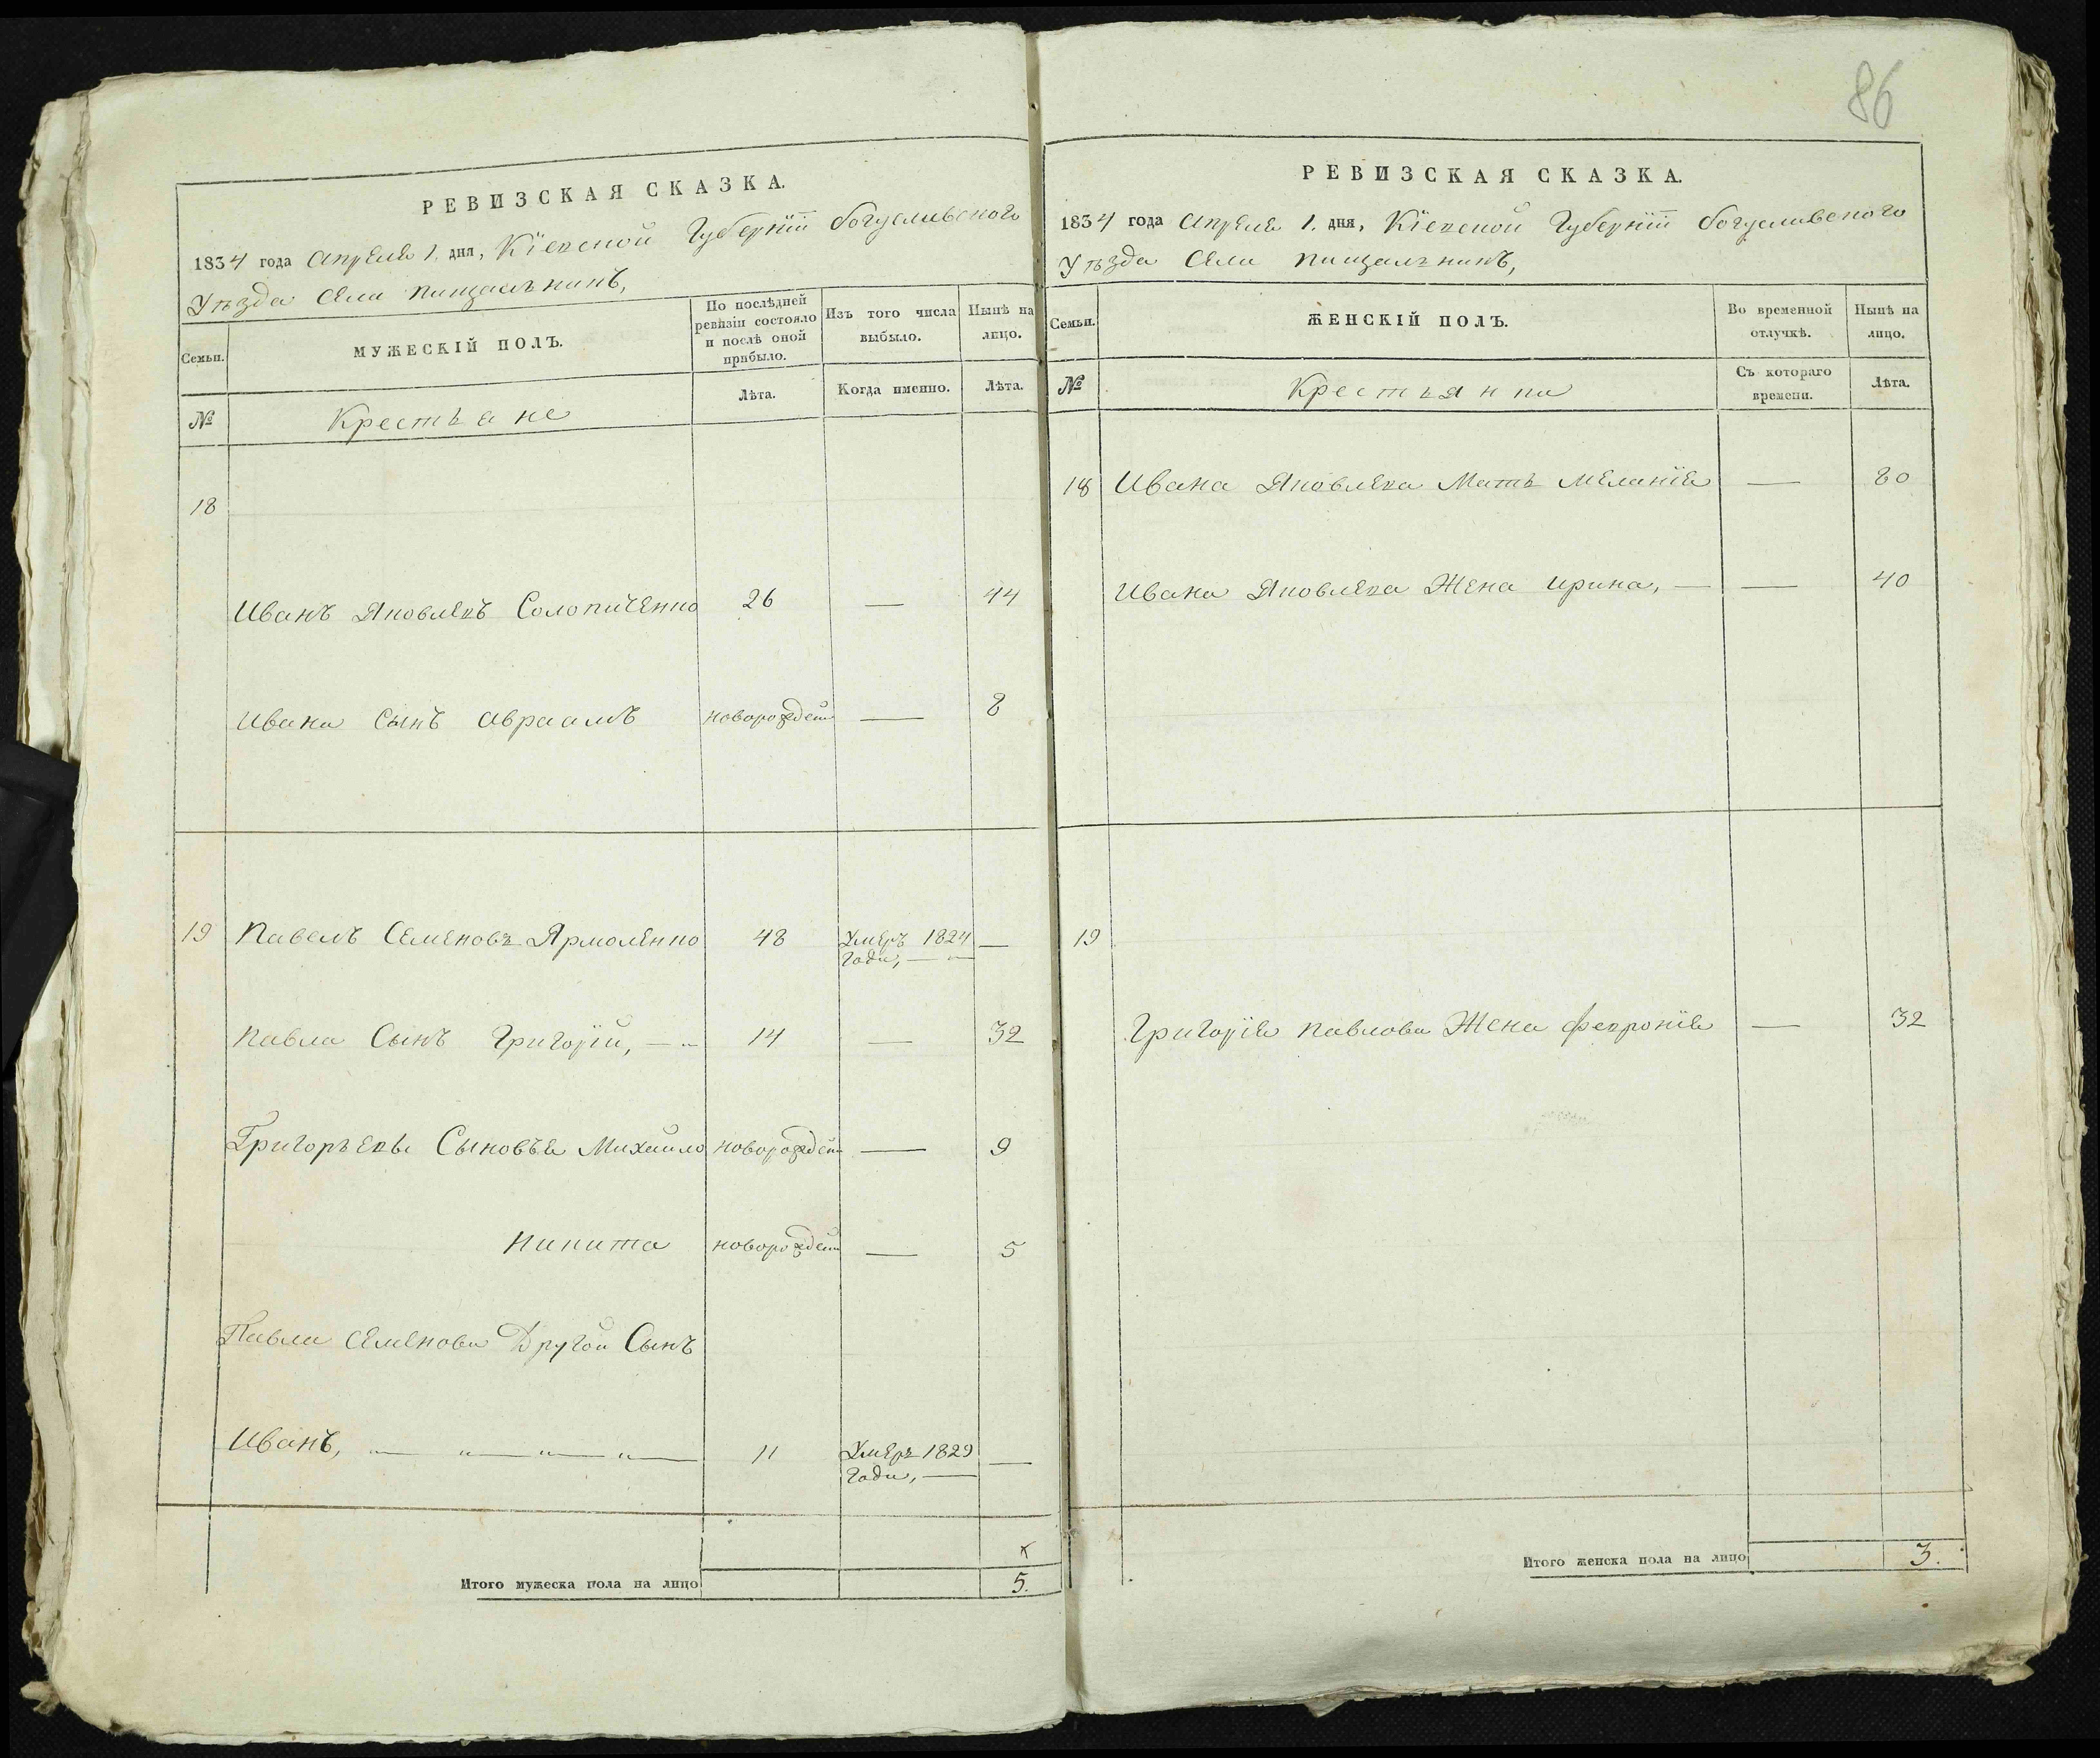 86
РЕВИЗСКАЯ СКАЗКА.
1834 года Апреля 1. дня, Кіевской Губерніи Богуславского
Уѣзда Села Пищальникъ,
Семьи.
МУЖЕСКІЙ ПОЛЪ.
По послѣдней
ревизіи состояло
и послѣ оной
прибыло.
Изъ того числа
выбыло.
Нынѣ на
лицо.
№
Крестьяне
Лѣта.
Когда именно.
Лѣта.
18
Иванъ Яковлевъ Солопиченко 26 — 44
Ивана Сынъ Авраамъ новорожден — 8
19 Павелъ Семеновъ Ярмоленко 48 Умеръ 1824 —
года, —
Павла Сынъ Григорій, — 14 — 32
Григорьевы Сыновья Михайло новорожден — 9
Никита новорожден — 5
Павла Семенова Другой Сынъ
Иванъ, — 11 Умеръ 1829 —
года, —
Итого мужеска пола на лицо 5.
РЕВИЗСКАЯ СКАЗКА.
1834 года Апреля 1. дня, Кіевской Губерніи Богуславского
Уѣзда Села Пищальникъ,
Семьи.
ЖЕНСКІЙ ПОЛЪ.
Во временной
отлучкѣ.
Нынѣ на
лицо.
№
Крестьянки
Съ котораго
времени.
Лѣта.
18 Ивана Яковлева Мать Меланія — 80
Ивана Яковлева Жена Ирина, — — 40
19
Григорія Павлова Жена Февронія — 32
Итого женска пола на лицо 3.